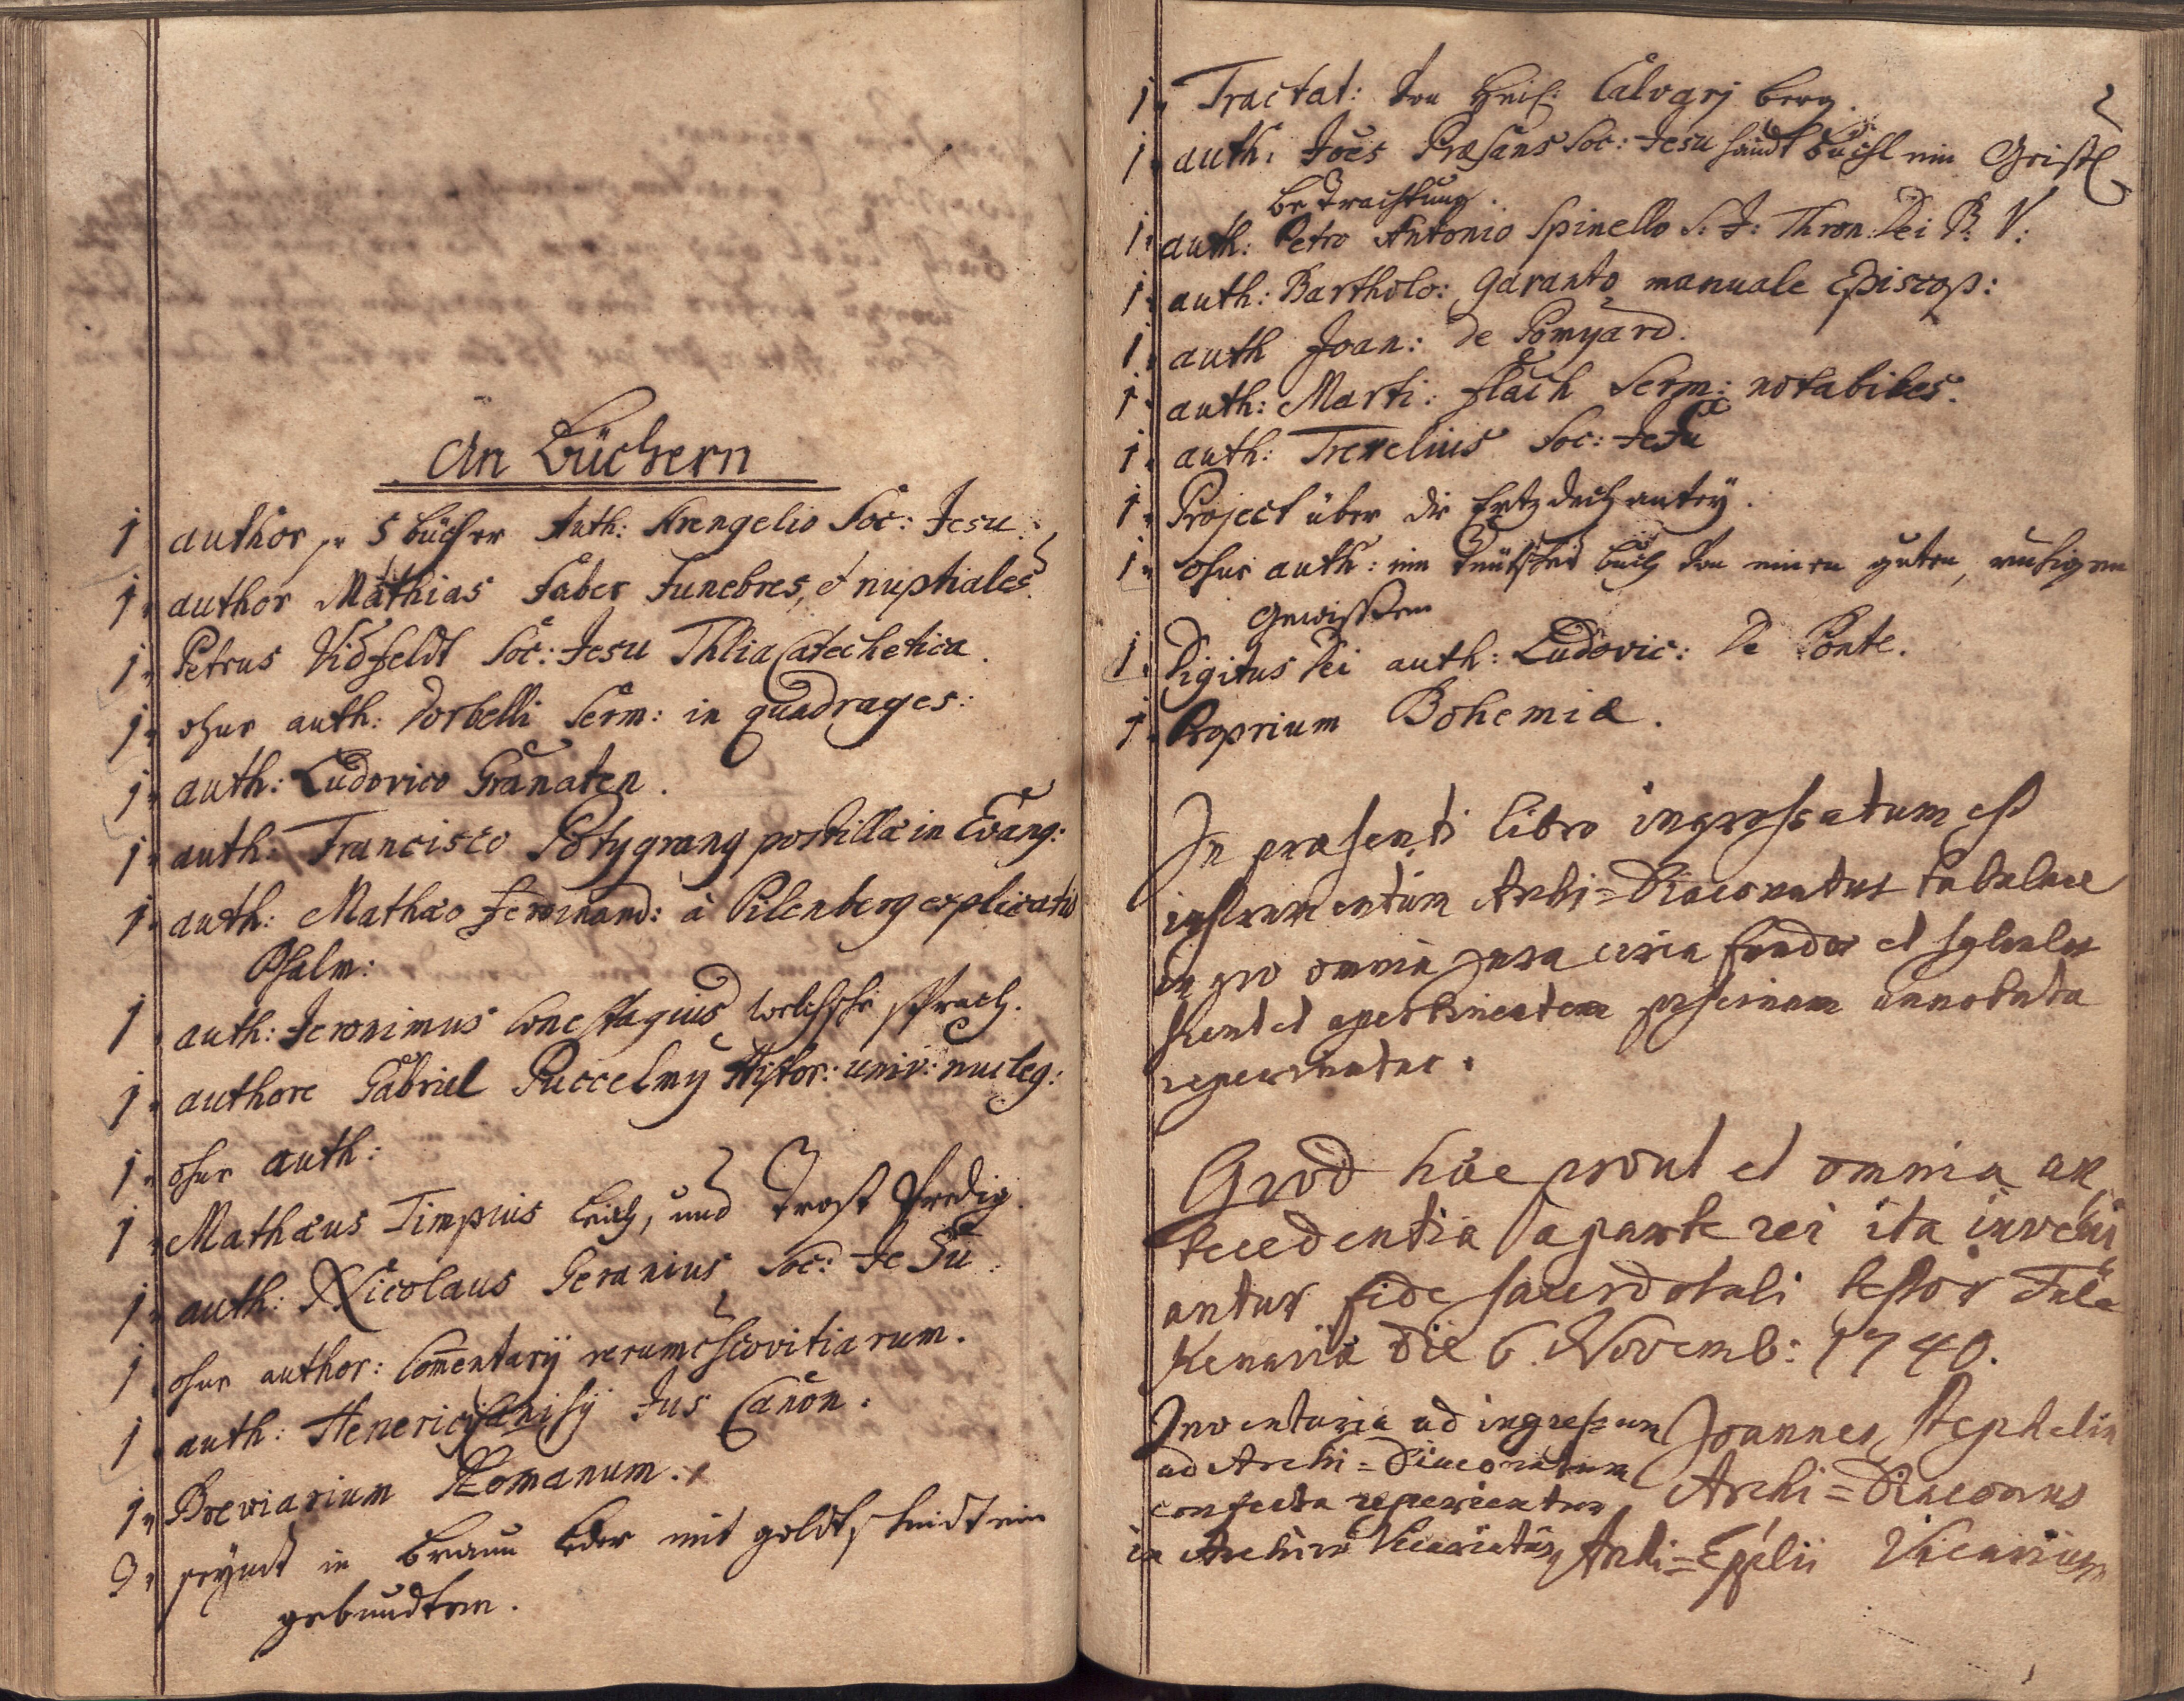 An Büchern
1 author pr 5 bücher Auth: Arengelio Soc: Jesu.
1. author Mathias Faber Funebres, et nuptiales.
1. Petrus Vidfeldt Soc: Jesu Thlia Catechetica.
1. ohne auth: Dorbelli Serm: in quadrages:
1. auth: Ludovico Granaten.
1. auth: Francisco Polygrany postilla in Evang:
1. auth: Mathæo Ferdinand: à Pilenberg explicatio
Psalm:
1. auth: Jeronimus Conestagius welsche sprach.
1. authore Gabriel Pucceliny Histor: univ: nucleg:
1. ohne auth:
1. Mathæus Timpius leich, und Trost Predig.
1. auth: Nicolaus Seranius Soc: JeSu.
1. ohne author: Commentarÿ rerum Moscovitiarum.
1. auth: Henerici Canisÿ Jus Canon.
1. Breviarium Romanum.
2. seyndt in braun leder mit goldtschnidt ein
gebundten.
1. Tractat: von Heil: Calvarj berg.
1. auth: Joes Præsans Soc: Jesu handt büchl ein Geistl
betrachtung.
1. auth: Petro Antonio Spinello S: J: Thron: Dei B: V:
1. auth: Bartholo: Garanto manuale Episcop:
1. auth Joan: de Pomyard.
1. auth: Marti: flach Serm: notabiles.
1. auth: Trevelius Soc: JeSu
1. Project über die Ertzdechantey.
1. ohne auth: ein deutsches buch von einen guten, ruhigen
Gewissen
1. Digitus Dei auth: Ludovic: de Ponte.
1. Proprium Bohemiæ.
In præsenti libro ingrossatum est
instrumentum Archi=Diaconatus
in quo omnia jura circa fundos et
annotata
reperiuntur.
Quod hæc prout et omnia an
tecedentia a parte rei ita inveni
antur fide sacerdotali testor Fale
Kenaviæ die 6. Novemb: 1740.
Inventaria ad ingressum
ad Archi=Diaconatum
confecta reperientur
in Archivo Vicariatus
Joannes Stephelin
Archi=Diaconus
Archi=Epclii Vicarius